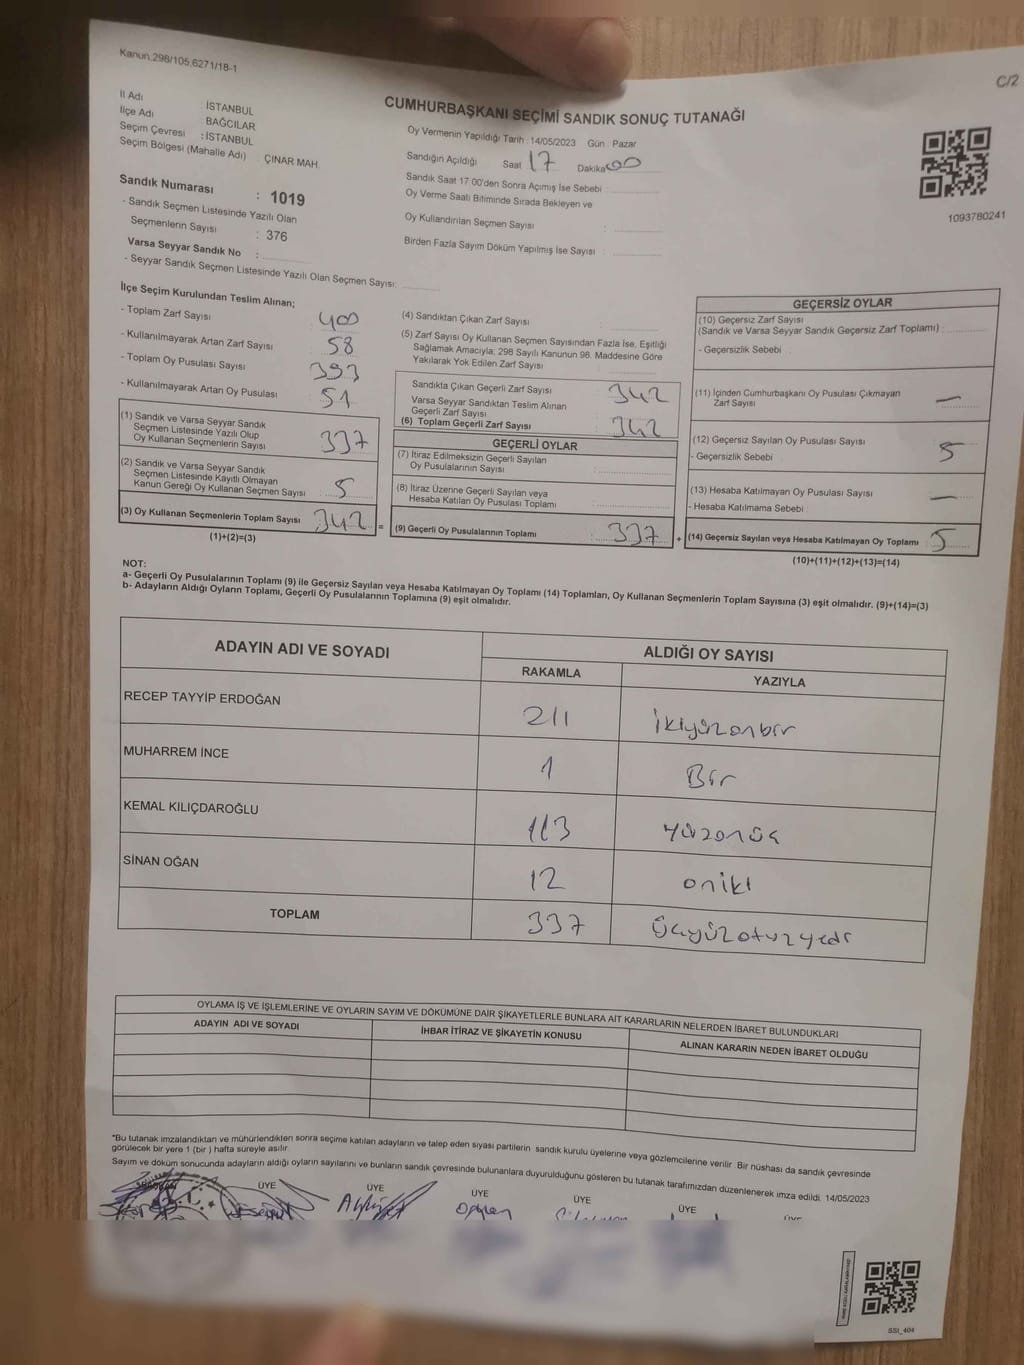 Kanun.298/105,6271/18-1
C/2
İl Adı : İSTANBUL
İlçe Adı : BAĞCILAR
Seçim Çevresi : İSTANBUL
Seçim Bölgesi (Mahalle Adı) ÇINAR MAH.
Sandık Numarası : 1019
- Sandık Seçmen Listesinde Yazılı Olan
Seçmenlerin Sayısı : 376
Varsa Seyyar Sandık No :
- Seyyar Sandık Seçmen Listesinde Yazılı Olan Seçmen Sayısı:
CUMHURBAŞKANI SEÇİMİ SANDIK SONUÇ TUTANAĞI
Oy Vermenin Yapıldığı Tarih : 14/05/2023 Gün : Pazar
Sandığın Açıldığı Saat 17 Dakika 00
Sandık Saat 17:00'den Sonra Açımış İse Sebebi :
Oy Verme Saati Bitiminde Sırada Bekleyen ve
Oy Kullandırılan Seçmen Sayısı :
Birden Fazla Sayım Döküm Yapılmış İse Sayısı :
1093780241
İlçe Seçim Kurulundan Teslim Alınan;
- Toplam Zarf Sayısı : 400
- Kullanılmayarak Artan Zarf Sayısı : 58
- Toplam Oy Pusulası Sayısı : 393
- Kullanılmayarak Artan Oy Pusulası : 51
(1) Sandık ve Varsa Seyyar Sandık
Seçmen Listesinde Yazılı Olup
Oy Kullanan Seçmenlerin Sayısı : 337
(2) Sandık ve Varsa Seyyar Sandık
Seçmen Listesinde Kayıtlı Olmayan
Kanun Gereği Oy Kullanan Seçmen Sayısı : 5
(3) Oy Kullanan Seçmenlerin Toplam Sayısı : 342
(1)+(2)=(3)
(4) Sandıktan Çıkan Zarf Sayısı :
(5) Zarf Sayısı Oy Kullanan Seçmen Sayısından Fazla İse, Eşitliği
Sağlamak Amacıyla, 298 Sayılı Kanunun 98. Maddesine Göre
Yakılarak Yok Edilen Zarf Sayısı :
Sandıkta Çıkan Geçerli Zarf Sayısı : 342
Varsa Seyyar Sandıktan Teslim Alınan
Geçerli Zarf Sayısı :
(6) Toplam Geçerli Zarf Sayısı : 342
GEÇERLİ OYLAR
(7) İtiraz Edilmeksizin Geçerli Sayılan
Oy Pusulalarının Sayısı :
(8) İtiraz Üzerine Geçerli Sayılan veya
Hesaba Katılan Oy Pusulası Toplamı :
= (9) Geçerli Oy Pusulalarının Toplamı : 337 +
GEÇERSİZ OYLAR
(10) Geçersiz Zarf Sayısı
(Sandık ve Varsa Seyyar Sandık Geçersiz Zarf Toplamı) :
- Geçersizlik Sebebi :
(11) İçinden Cumhurbaşkanı Oy Pusulası Çıkmayan
Zarf Sayısı : —
(12) Geçersiz Sayılan Oy Pusulası Sayısı : 5
- Geçersizlik Sebebi :
(13) Hesaba Katılmayan Oy Pusulası Sayısı : —
- Hesaba Katılmama Sebebi :
(14) Geçersiz Sayılan veya Hesaba Katılmayan Oy Toplamı : 5
(10)+(11)+(12)+(13)=(14)
NOT:
a- Geçerli Oy Pusulalarının Toplamı (9) ile Geçersiz Sayılan veya Hesaba Katılmayan Oy Toplamı (14) Toplamları, Oy Kullanan Seçmenlerin Toplam Sayısına (3) eşit olmalıdır. (9)+(14)=(3)
b- Adayların Aldığı Oyların Toplamı, Geçerli Oy Pusulalarının Toplamına (9) eşit olmalıdır.
ADAYIN ADI VE SOYADI ALDIĞI OY SAYISI
RAKAMLA YAZIYLA
RECEP TAYYİP ERDOĞAN 211 İkiyüzonbir
MUHARREM İNCE 1 Bir
KEMAL KILIÇDAROĞLU 113 yüzonüç
SİNAN OĞAN 12 oniki
TOPLAM 337 üçyüzotuzyedi
OYLAMA İŞ VE İŞLEMLERİNE VE OYLARIN SAYIM VE DÖKÜMÜNE DAİR ŞİKAYETLERLE BUNLARA AİT KARARLARIN NELERDEN İBARET BULUNDUKLARI
ADAYIN ADI VE SOYADI İHBAR İTİRAZ VE ŞİKAYETİN KONUSU ALINAN KARARIN NEDEN İBARET OLDUĞU
*Bu tutanak imzalandıktan ve mühürlendikten sonra seçime katılan adayların ve talep eden siyasi partilerin sandık kurulu üyelerine veya gözlemcilerine verilir. Bir nüshası da sandık çevresinde
görülecek bir yere 1 (bir) hafta süreyle asılır.
Sayım ve döküm sonucunda adayların aldığı oyların sayılarını ve bunların sandık çevresinde bulunanlara duyurulduğunu gösteren bu tutanak tarafımızdan düzenlenerek imza edildi. 14/05/2023
ÜYE ÜYE ÜYE ÜYE ÜYE ÜYE
SSI_404